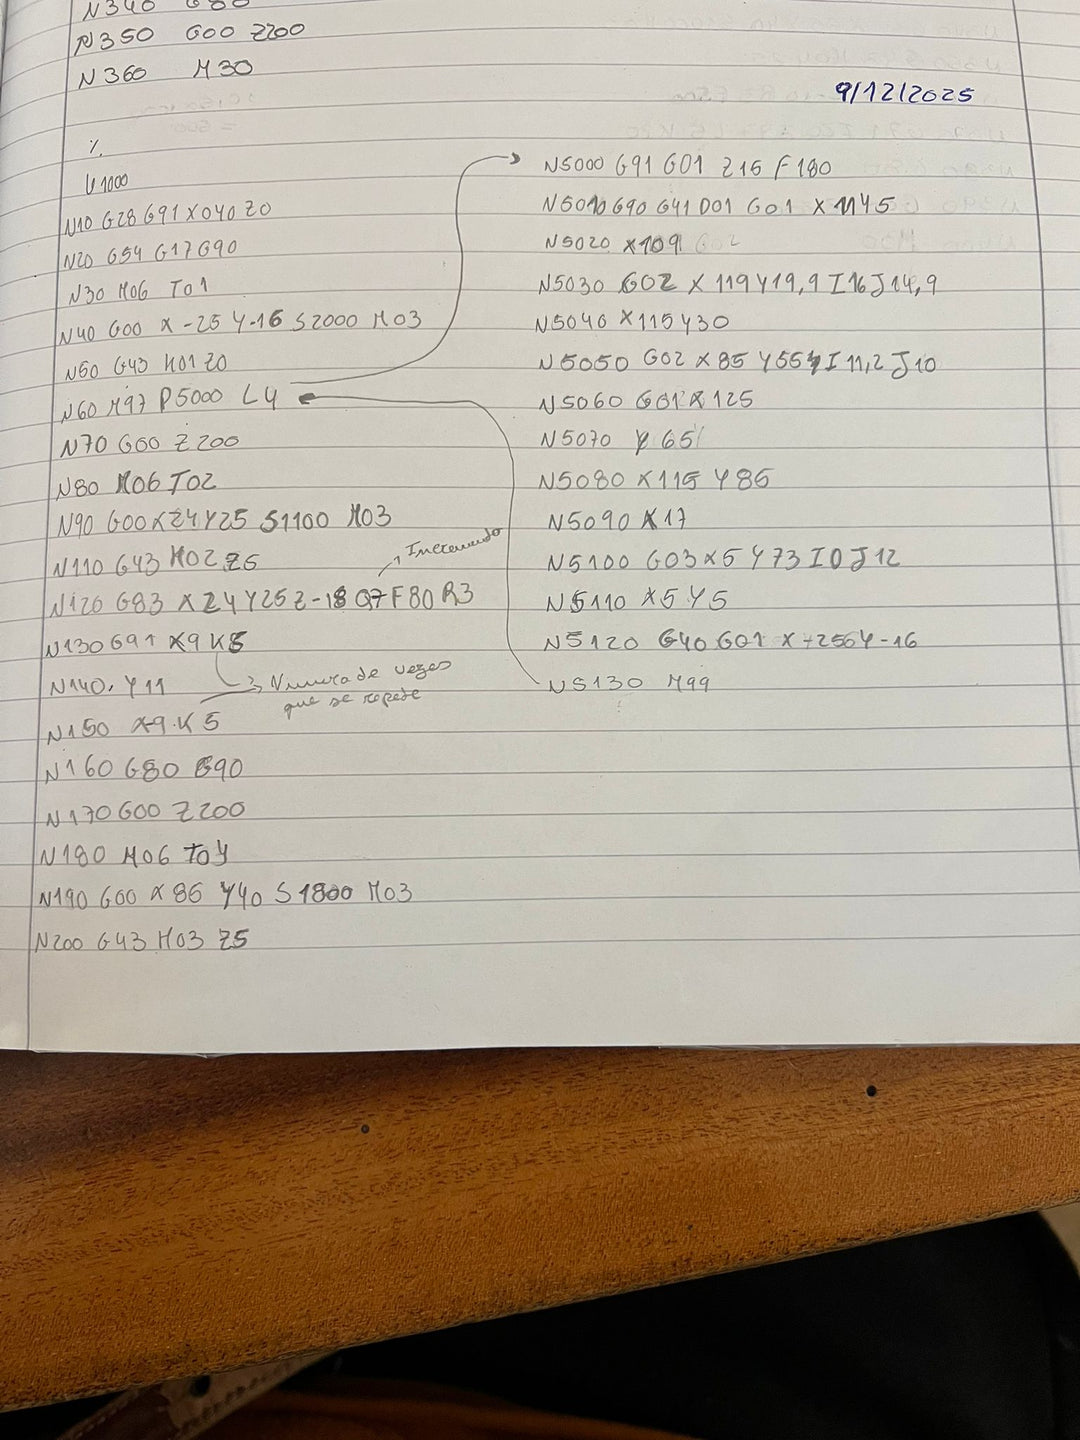 N350 G00 Z200
N360 M30
9/12/2025
%
N10 G28 G91 X0 Y0 Z0
N20 G54 G17 G90
N30 M06 T01
N40 G00 X-25 Y-16 S2000 M03
N50 G43 H01 Z0
N60 M97 P5000 L4
N70 G00 Z200
N80 M06 T02
N90 G00 X24 Y25 S1100 M03
N110 G43 H02 Z5
Incremento
N120 G83 X24 Y25 Z-18 Q7 F80 R3
N130 G91 X9 K5
N140. Y11
Numero de vezes
que se repete
N150 X-9 K5
N160 G80 G90
N170 G00 Z200
N180 M06 T04
N190 G00 X86 Y40 S1800 M03
N200 G43 H03 Z5
N5000 G91 G01 Z15 F180
N5010 G90 G41 D01 G01 X1145
N5020 X109 G02
N5030 G02 X119 Y19,9 I16 J14,9
N5040 X115 Y30
N5050 G02 X85 Y55 I11,2 J10
N5060 G01 X125
N5070 Y65
N5080 X115 Y86
N5090 X17
N5100 G03 X5 Y73 I0 J12
N5110 X5 Y5
N5120 G40 G01 X-25 Y-16
N5130 M99